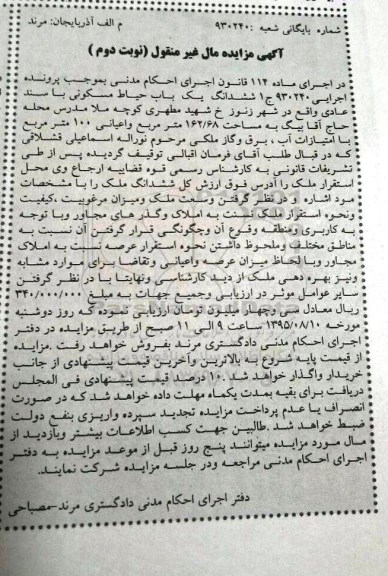 شماره بایگانی شعبه : ۹۳۰۲۴۰ م الف آذربایجان: مرند
آگهی مزایده مال غیر منقول (نوبت دوم )
در اجرای ماده ۱۱۴ قانون اجرای احکام مدنی بموجب پرونده
اجرایی ۹۳۰۲۴۰ ج۱ ششدانگ یک باب حیاط مسکونی با سند
عادی واقع در شهر زنوز خ شهید مطهری کوچه ملا مدرس محله
حاج آقا بیگ به مساحت ۱۶۲/۶۸ متر مربع واعیانی ۱۰۰ متر مربع
با امتیازات آب ، برق وگاز ملکی مرحوم نوراله اسماعیلی قشلاقی
که در قبال طلب آقای فرمان اقبالی توقیف گردیده پس از طی
تشریفات قانونی به کارشناس رسمی قوه قضاییه ارجاع وی محل
استقرار ملک را آدرس فوق ارزش کل ششدانگ ملک را با مشخصات
مود اشاره از در نظر گرفتن وسعت ملک ومیزان مرغوبیت ،کیفیت
ونحوه استقرار ملک نسبت به املاک وگذر های مجاور وبا توجه
به کاربری ومنطقه وقوع آن وچگونگی قرار گرفتن آن نسبت به
مناطق مختلف وملحوظ داشتن نحوه استقرار عرصه نسبت به املاک
مجاور وبا لحاظ میزان عرصه واعیانی وتقاضا برای موارد مشابه
ونیز بهره دهی ملک از دید کارشناسی ونهایتا با در نظر گرفتن
سایر عوامل موثر در ارزیابی وجمیع جهات به مبلغ ۳۴۰/۰۰۰/۰۰۰
ریال معادل سی وچهار میلیون تومان ارزیابی نموده که روز دوشنبه
مورخه ۱۳۹۵/۰۸/۱۰ ساعت ۹ الی ۱۱ صبح از طریق مزایده در دفتر
اجرای احکام مدنی دادگستری مرند بفروش خواهد رفت .مزایده
از قیمت پایه شروع به بالاترین وآخرین قیمت پیشنهادی از جانب
خریدار واگذار خواهد شد .۱۰ درصد قیمت پیشنهادی فی المجلس
دریافت برای بقیه بمدت یکماه مهلت داده خواهد شد که در صورت
انصراف یا عدم پرداخت مزایده تجدید سپرده واریزی بنفع دولت
ضبط خواهد شد .طالبین جهت کسب اطلاعات بیشتر وبازدید از
مال مورد مزایده میتوانند پنج روز قبل از موعد مزایده به دفتر
اجرای احکام مدنی مراجعه ودر جلسه مزایده شرکت نمایند.
دفتر اجرای احکام مدنی دادگستری مرند-مصباحی